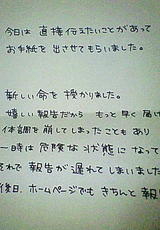 今日は 直接伝えたいことがあって
お手紙を 出させてもらいました。
新しい命を 授かりました。
嬉しい報告だから もっと早く 届け
体調を 崩してしまったことも あり
一時は 危険な 状態に なって
それで 報告が 遅れてしまいま
後日、ホームページでも きちんと 報